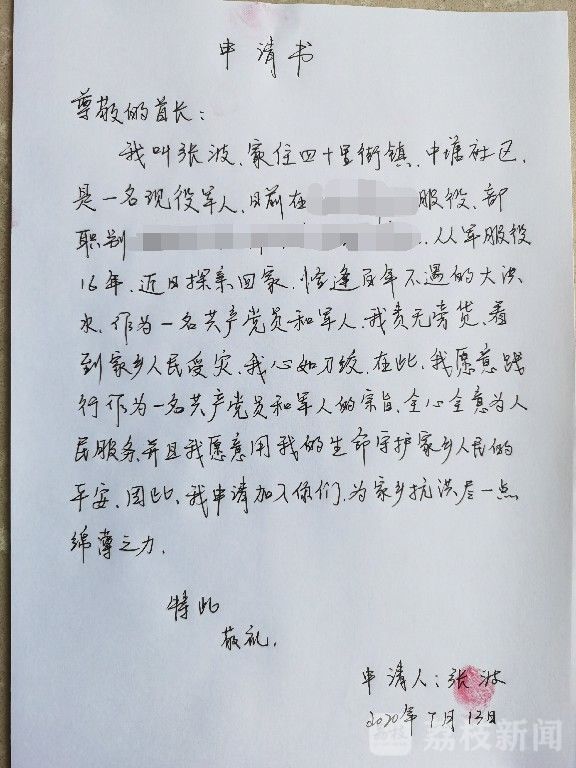 申请书
尊敬的首长：
我叫张波、家住四十里街镇、中塘社区、
是一名现役军人、目前在服役、部
职别、从军服役
16年、近日探亲回家、恰逢百年不遇的大洪
水、作为一名共产党员和军人、我责无旁贷、看
到家乡人民受灾、我心如刀绞、在此、我愿意践
行作为一名共产党员和军人的宗旨、全心全意为人
民服务、并且我愿意用我的生命守护家乡人民的
平安、因此、我申请加入你们、为家乡抗洪尽一点
绵薄之力.
特此
敬礼.
申请人：张波
2020年7月13日
荔枝新闻